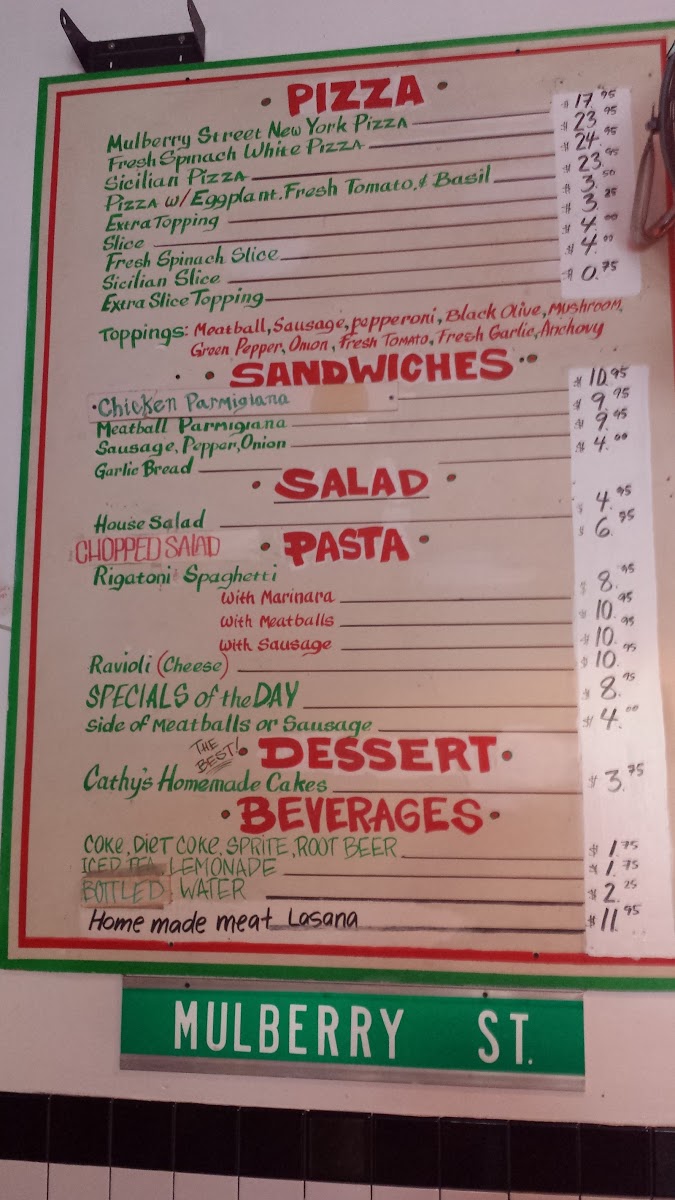 • PIZZA •
Mulberry Street New York Pizza $17.95
Fresh Spinach White Pizza $23.95
Sicilian Pizza $24.95
Pizza w/ Eggplant, Fresh Tomato, & Basil $23.95
Extra Topping $3.50
Slice $3.25
Fresh Spinach Slice $4.00
Sicilian Slice $4.00
Extra Slice Topping $0.75
Toppings: Meatball, Sausage, pepperoni, Black Olive, Mushroom,
Green Pepper, Onion, Fresh Tomato, Fresh Garlic, Anchovy
• SANDWICHES •
•Chicken Parmigiana $10.95
Meatball Parmigiana $9.95
Sausage, Pepper, Onion $9.95
Garlic Bread $4.00
• SALAD •
House Salad $4.95
CHOPPED SALAD $6.95
• PASTA •
Rigatoni & Spaghetti
with Marinara $8.95
with Meatballs $10.95
with Sausage $10.95
Ravioli (Cheese) $10.95
SPECIALS of the DAY $8.95
Side of Meatballs or Sausage $4.00
THE BEST! • DESSERT •
Cathy's Homemade Cakes $3.75
• BEVERAGES •
COKE, DIET COKE, SPRITE, ROOT BEER $1.75
ICED TEA, LEMONADE $1.75
BOTTLED WATER $2.25
Home made meat Lasana $11.95
MULBERRY ST.